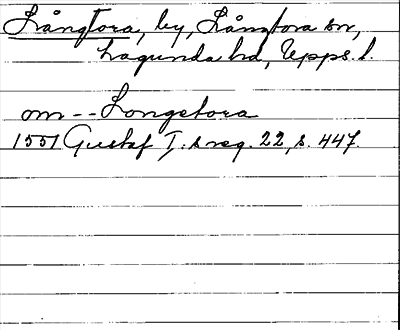 Långtora, by, Långtora sn,
Lagunda hd, Upps. l.
om -- Longetora
1551 Gustaf I:s reg. 22, s. 447.